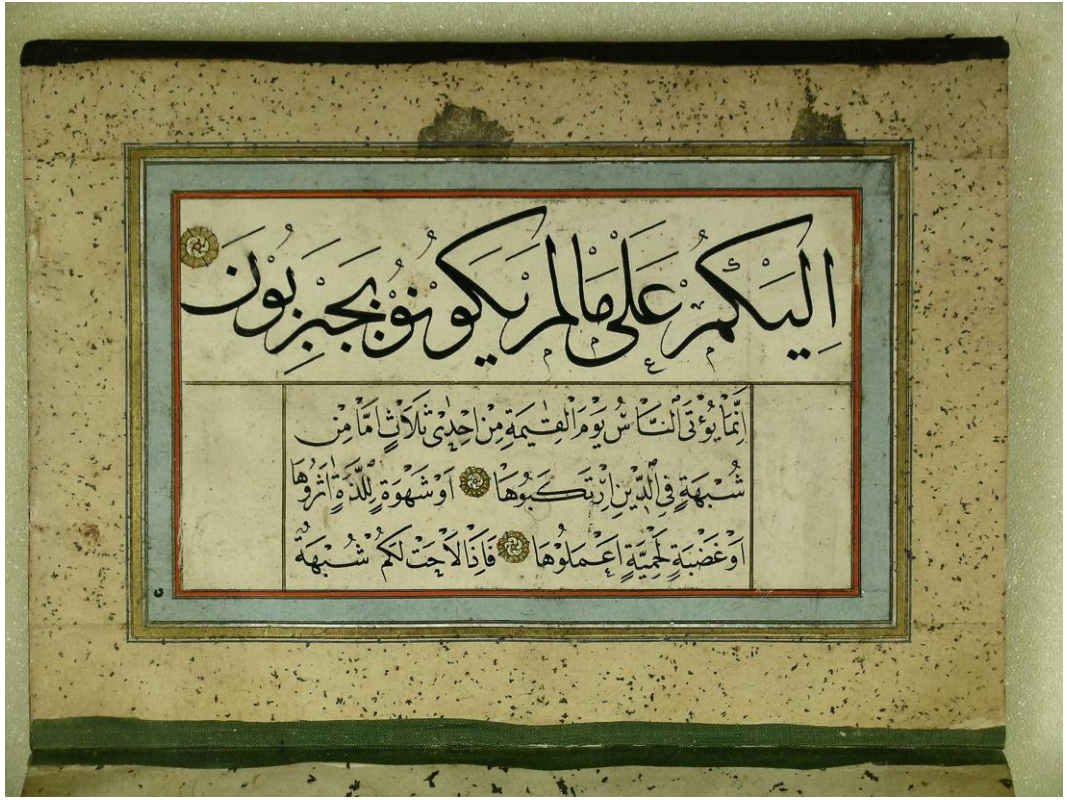 اِلَيْكُمْ عَلٰى مَا لَمْ يَكُونُوْ
اِنَّمَا يُؤْتَى النَّاسُ يَوْمَ الْقِيٰمَةِ مِنْ اِحْدٰى ثَلَاثٍ اِمَّا مِنْ
شُبْهَةٍ فِى الدِّينِ اِرْتَكَبُوهَا اَوْ شَهْوَةٍ لِلَّذَّةٍ اٰثَرُوهَا
اَوْ غَضْبَةٍ لِحَمِيَّةٍ اَعْمَلُوهَا فَاِذَا لَاحَتْ لَكُمْ شُبْهَةٌ